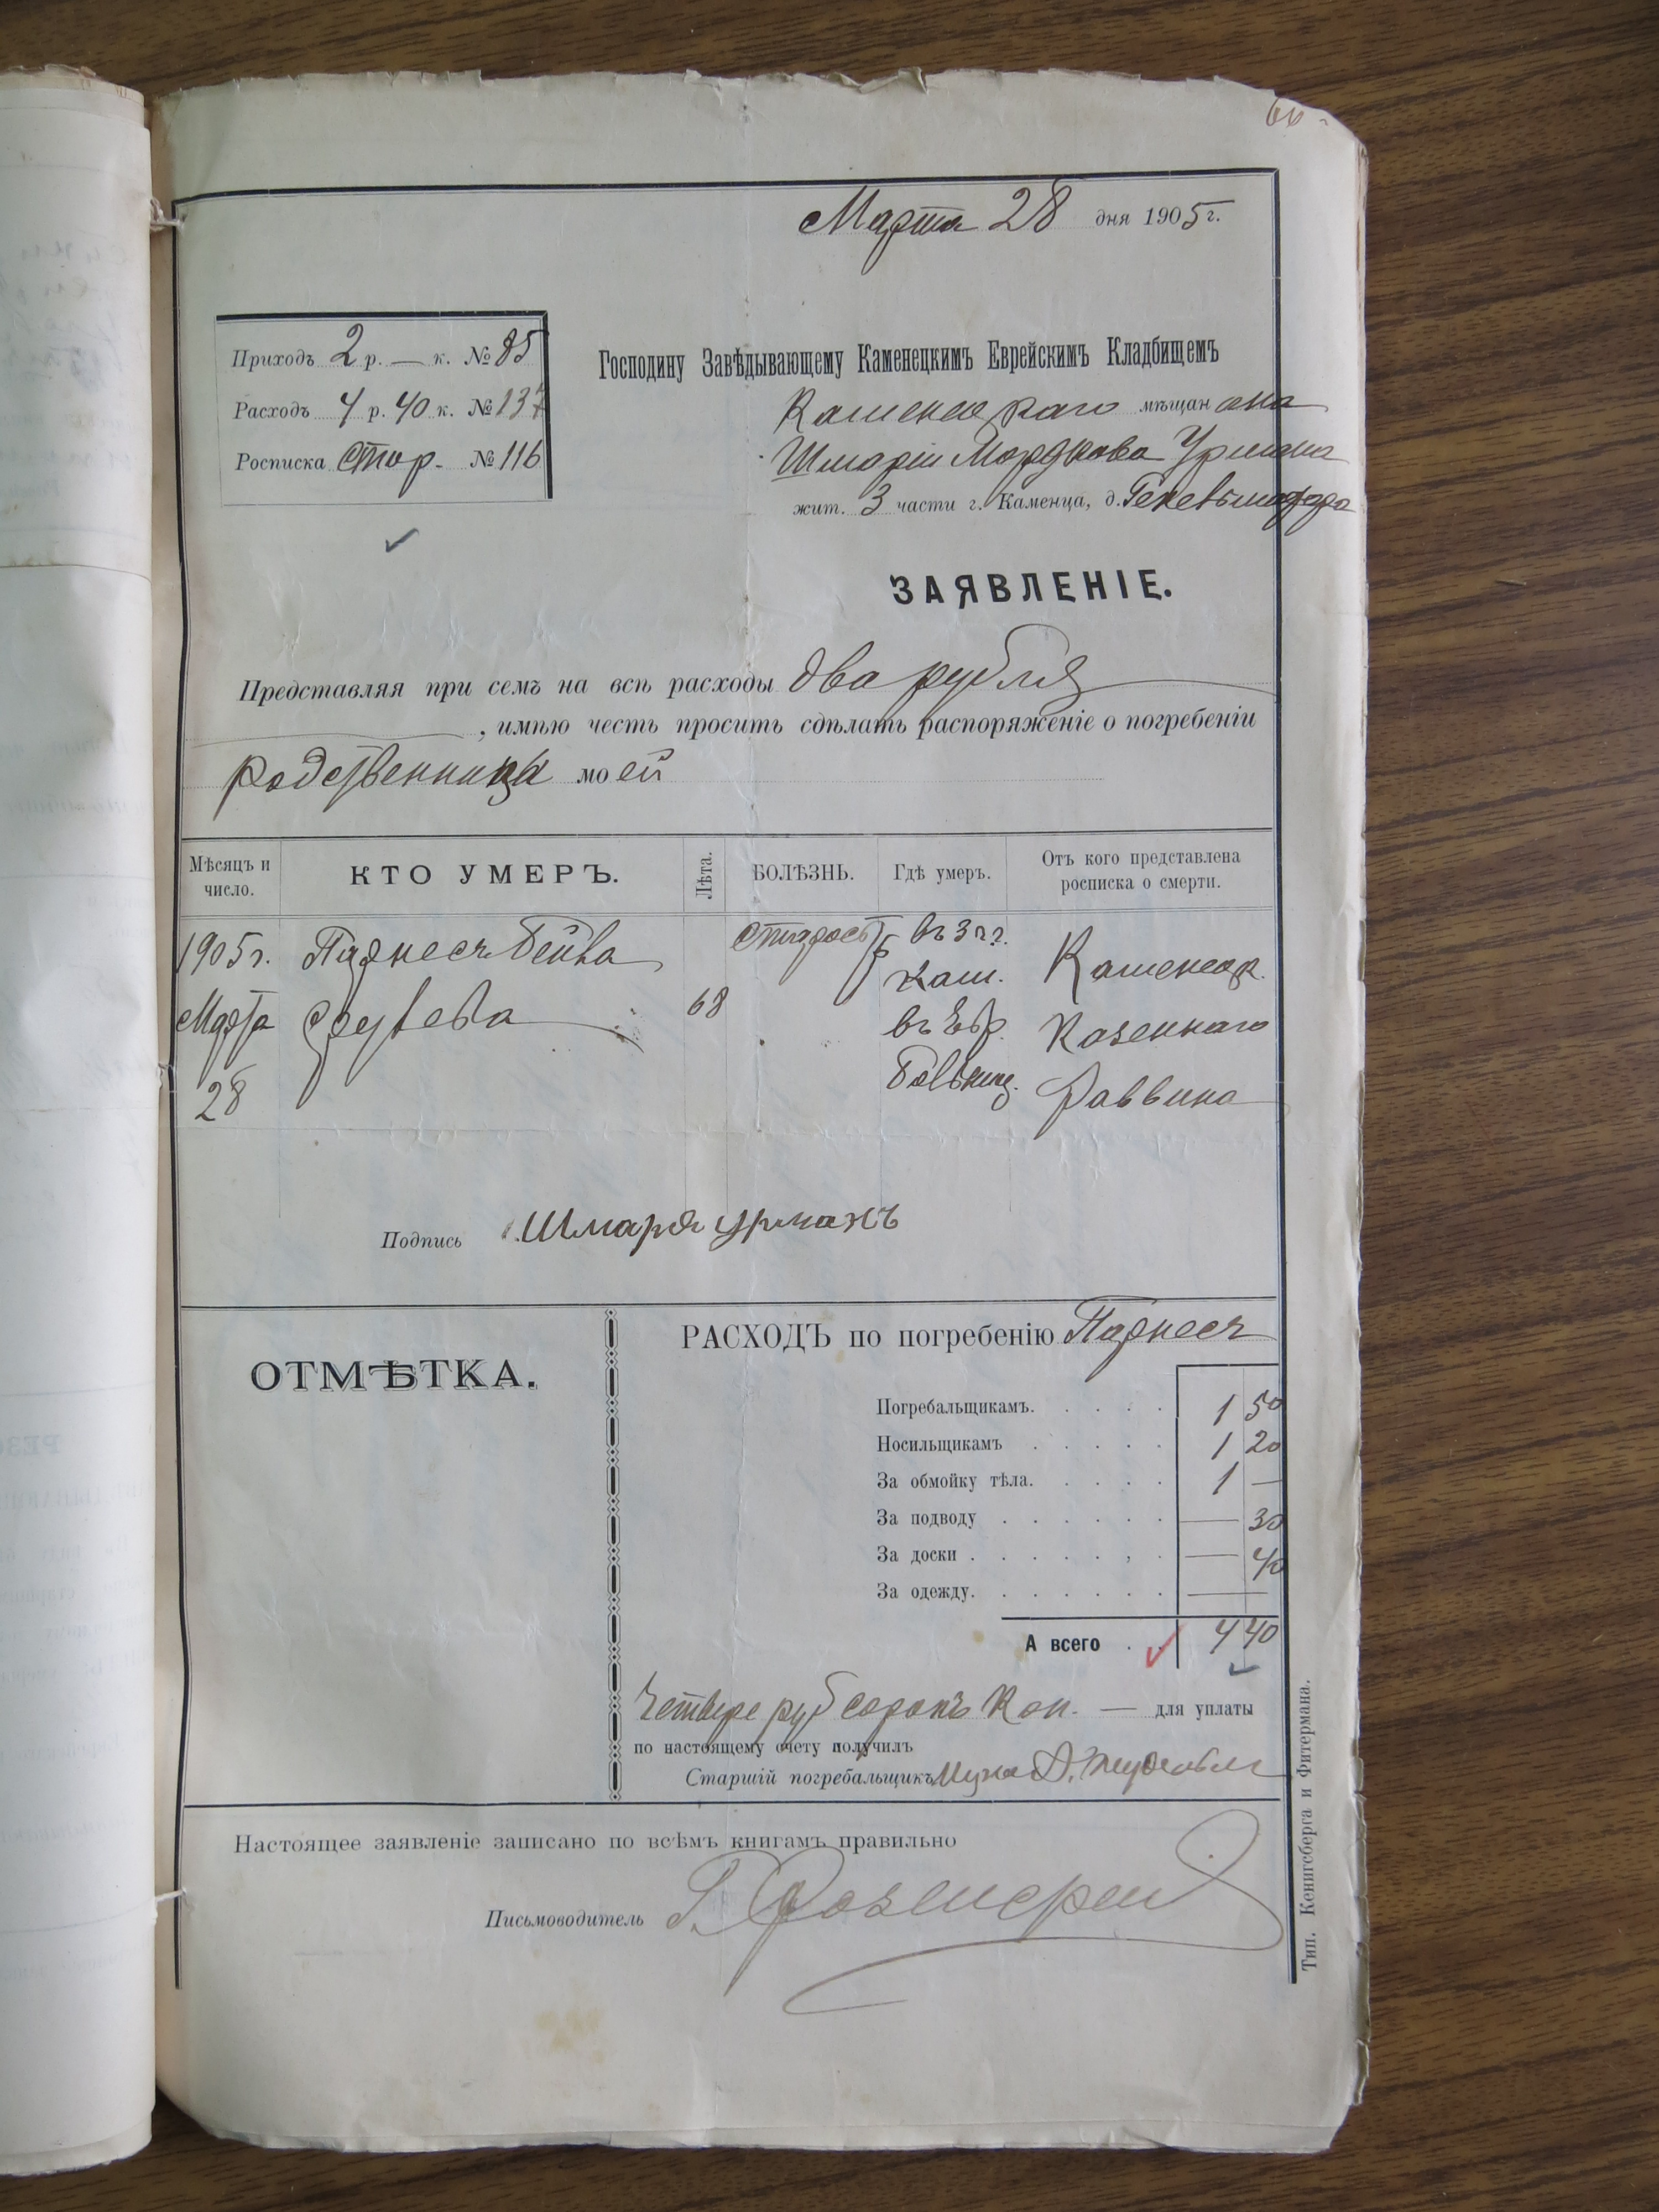 Марта 28 дня 1905 г.
Приходъ 2 р. — к. № 85
Расходъ 4 р. 40 к. № 137
Росписка стор. № 116
Господину Завѣдывающему Каменецкимъ Еврейскимъ Кладбищемъ
Каменецкаго мѣщанина
Шмарiи Мордкова Урмана
жит. 3 части г. Каменца, д.
ЗАЯВЛЕНІЕ.
Представляя при семъ на всѣ расходы два рубля
, имѣю честь просить сдѣлать распоряженіе о погребеніи
родственницы моей
Мѣсяцъ и число. КТО УМЕРЪ. Лѣта. БОЛѢЗНЬ. Гдѣ умеръ. Отъ кого представлена росписка о смерти.
1905 г. Парнесъ Бейла старость въ 3 ч. г. Каменецк.
Марта 68 Кам. Казеннаго
28 въ Евр. больниц. Раввина
Подпись Шмаря Урманъ
ОТМѢТКА.
РАСХОДЪ по погребенію Парнесъ
Погребальщикамъ. 1 50
Носильщикамъ 1 20
За обмойку тѣла. 1 —
За подводу — 30
За доски — 40
За одежду. —
А всего 4 40
Четыре руб сорокъ коп. — для уплаты
по настоящему счету получилъ
Старшій погребальщикъ
Настоящее заявленіе записано по всѣмъ книгамъ правильно
Письмоводитель
Тип. Кенигсберга и Фитермана.